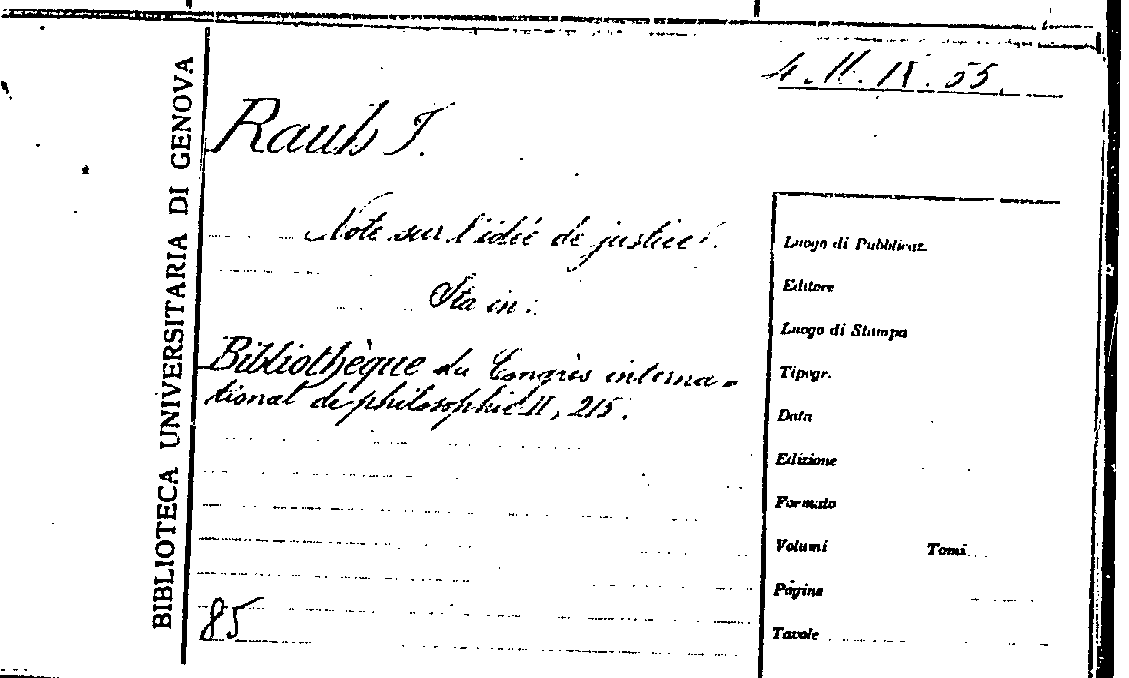 BIBLIOTECA UNIVERSITARIA DI GENOVA
4.II.IX.55.
Rauh F.
Note sur l'idée de justice.
Sta in:
Bibliothèque du Congrès interna-
tional de philosophie II, 215.
85
Luogo di Pubblicaz.
Editore
Luogo di Stampa
Tipogr.
Data
Edizione
Formato
Volumi Tomi
Pagine
Tavole